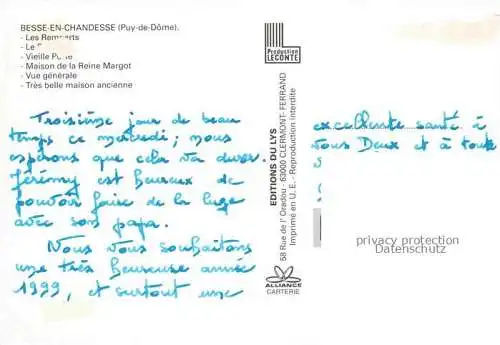 BESSE-EN-CHANDESSE (Puy-de-Dôme).
- Les Remparts
- Le
- Vieille Porte
- Maison de la Reine Margot
- Vue générale
- Très belle maison ancienne
Troisième jour de beau
temps ce mercredi ; nous
espérons que cela va durer.
Jérémy est heureux de
pouvoir faire de la luge
avec son papa.
Nous vous souhaitons
une très heureuse année
1999, et surtout une
Production
LECONTE
EDITIONS DU LYS
58 Rue de l' Oradou - 63000 CLERMONT-FERRAND
Imprimé en U. E. - Reproduction interdite
ALLIANCE
CARTERIE
excellente santé à
vous Deux et à toute
privacy protection
Datenschutz